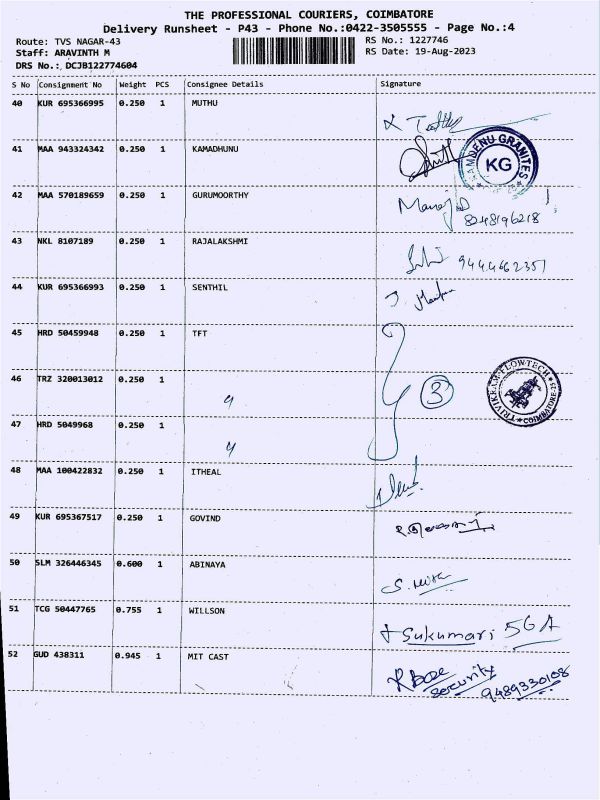 THE PROFESSIONAL COURIERS, COIMBATORE
Delivery Runsheet - P43 - Phone No.:0422-3505555 - Page No.:4
Route: TVS NAGAR-43 RS No.: 1227746
Staff: ARAVINTH M RS Date: 19-Aug-2023
DRS No.: DCJB122774604
S No Consignment No Weight PCS Consignee Details Signature
40 KUR 695366995 0.250 1 MUTHU
41 MAA 943324342 0.250 1 KAMADHUNU
KAMDENU GRANITES
KG
42 MAA 570189659 0.250 1 GURUMOORTHY Manoj D
8248196218
43 NKL 8107189 0.250 1 RAJALAKSHMI 9444662351
44 KUR 695366993 0.250 1 SENTHIL
45 HRD 50459948 0.250 1 TFT
46 TRZ 320013012 0.250 1 3
TRIVIKRAM FLOWTECH
COIMBATORE
47 HRD 5049968 0.250 1
48 MAA 100422832 0.250 1 ITHEAL
49 KUR 695367517 0.250 1 GOVIND
50 SLM 326446345 0.600 1 ABINAYA
51 TCG 50447765 0.755 1 WILLSON Sukumari 5GA
52 GUD 438311 0.945 1 MIT CAST
security
9489330108